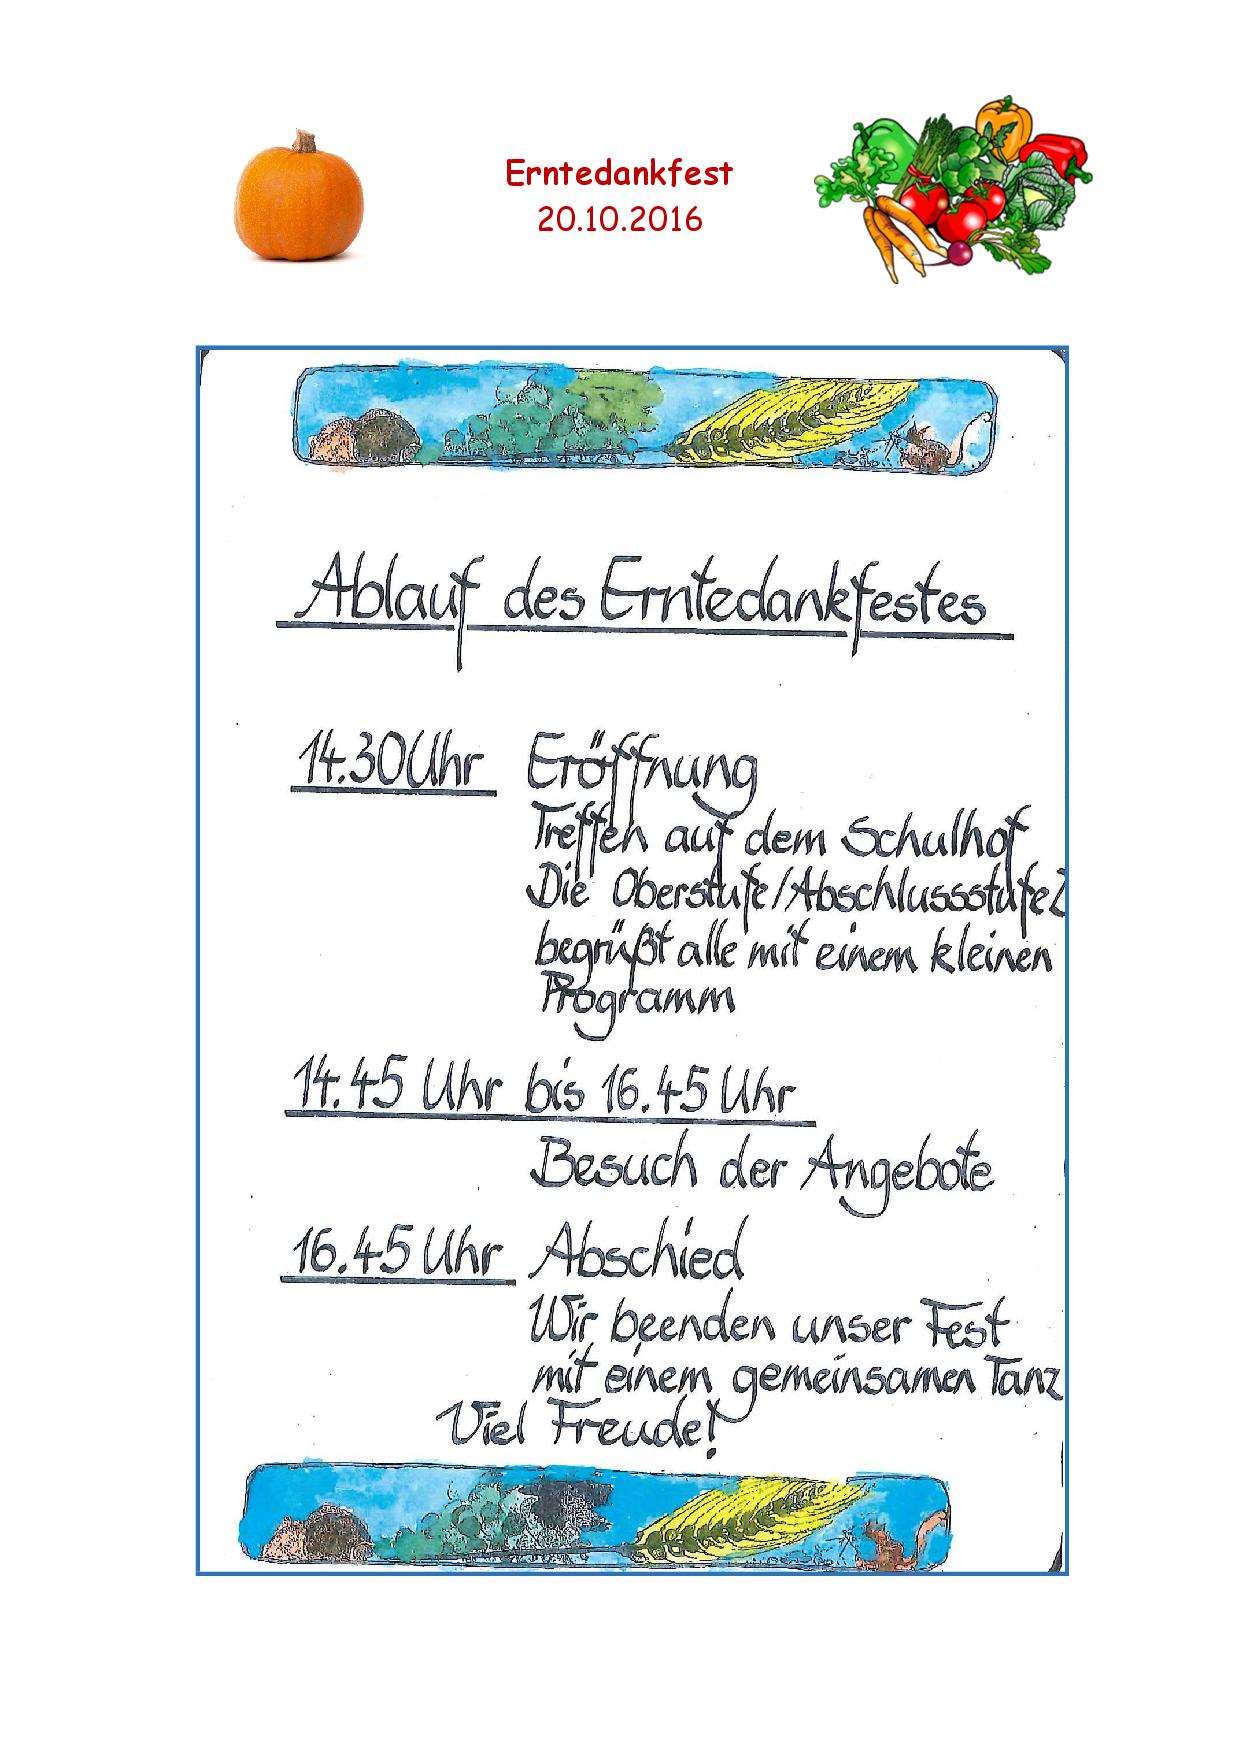 Erntedankfest
20.10.2016
Ablauf des Erntedankfestes
14.30 Uhr Eröffnung
Treffen auf dem Schulhof
Die Oberstufe/Abschlussstufe 2
begrüßt alle mit einem kleinen
Programm
14.45 Uhr bis 16.45 Uhr
Besuch der Angebote
16.45 Uhr Abschied
Wir beenden unser Fest
mit einem gemeinsamen Tanz
Viel Freude!